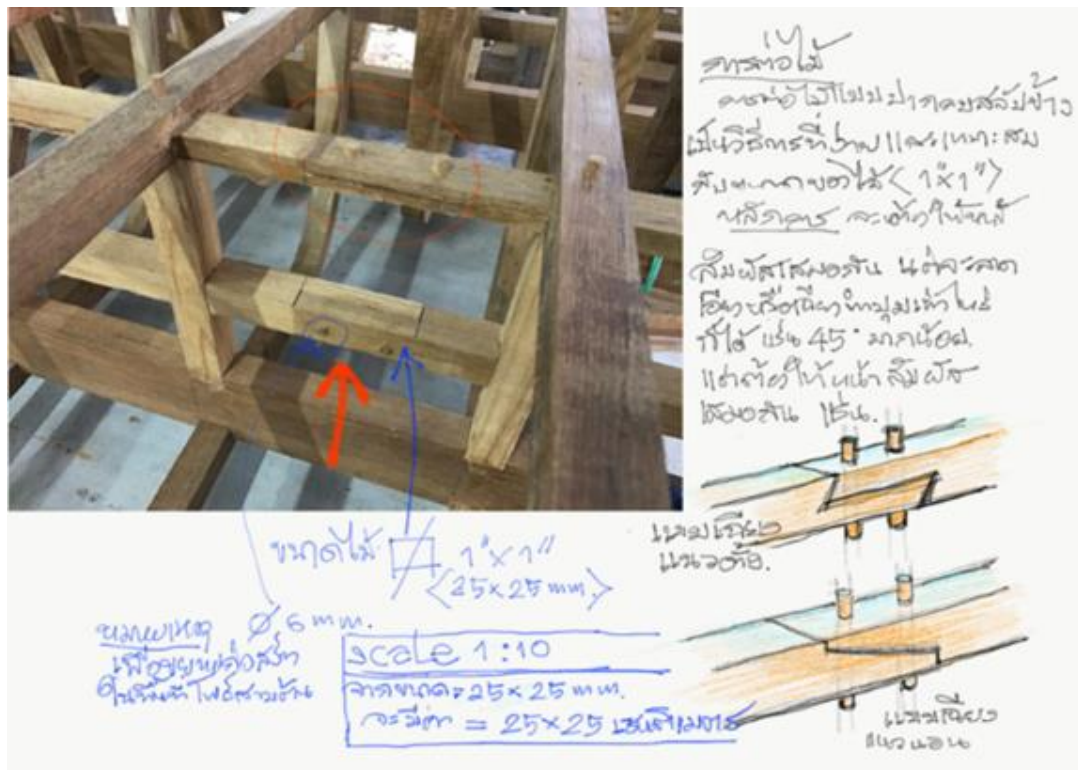 การต่อไม้
การต่อไม้แบบปากคมสลับข้าง
เป็นวิธีการที่ง่ายและเหมาะสม
กับขนาดของไม้ <1"x1">
หลักการ จะต้องให้หน้า
สัมผัสเสมอกัน แต่จะลาด
เอียงหรือเฉียงทำมุมเท่าไหร่
ก็ได้ เช่น 45° มากน้อย.
แต่ต้องให้หน้าสัมผัส
เสมอกัน เช่น.
แบบเฉียง
แนวตั้ง.
แบบเฉียง
แนวนอน
ขนาดไม้ 1"x1"
<25x25 mm.>
หมายเหตุ Ø 6 mm.
เพื่อขยายส่วน
scale 1:10
จากขนาด = 25x25 mm.
จะมีค่า = 25x25 เซนติเมตร